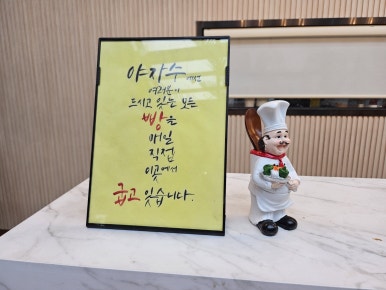 야자수 에서는
여러분이
드시고 있는 모든
빵을
매일
직접
이곳에서
굽고 있습니다.